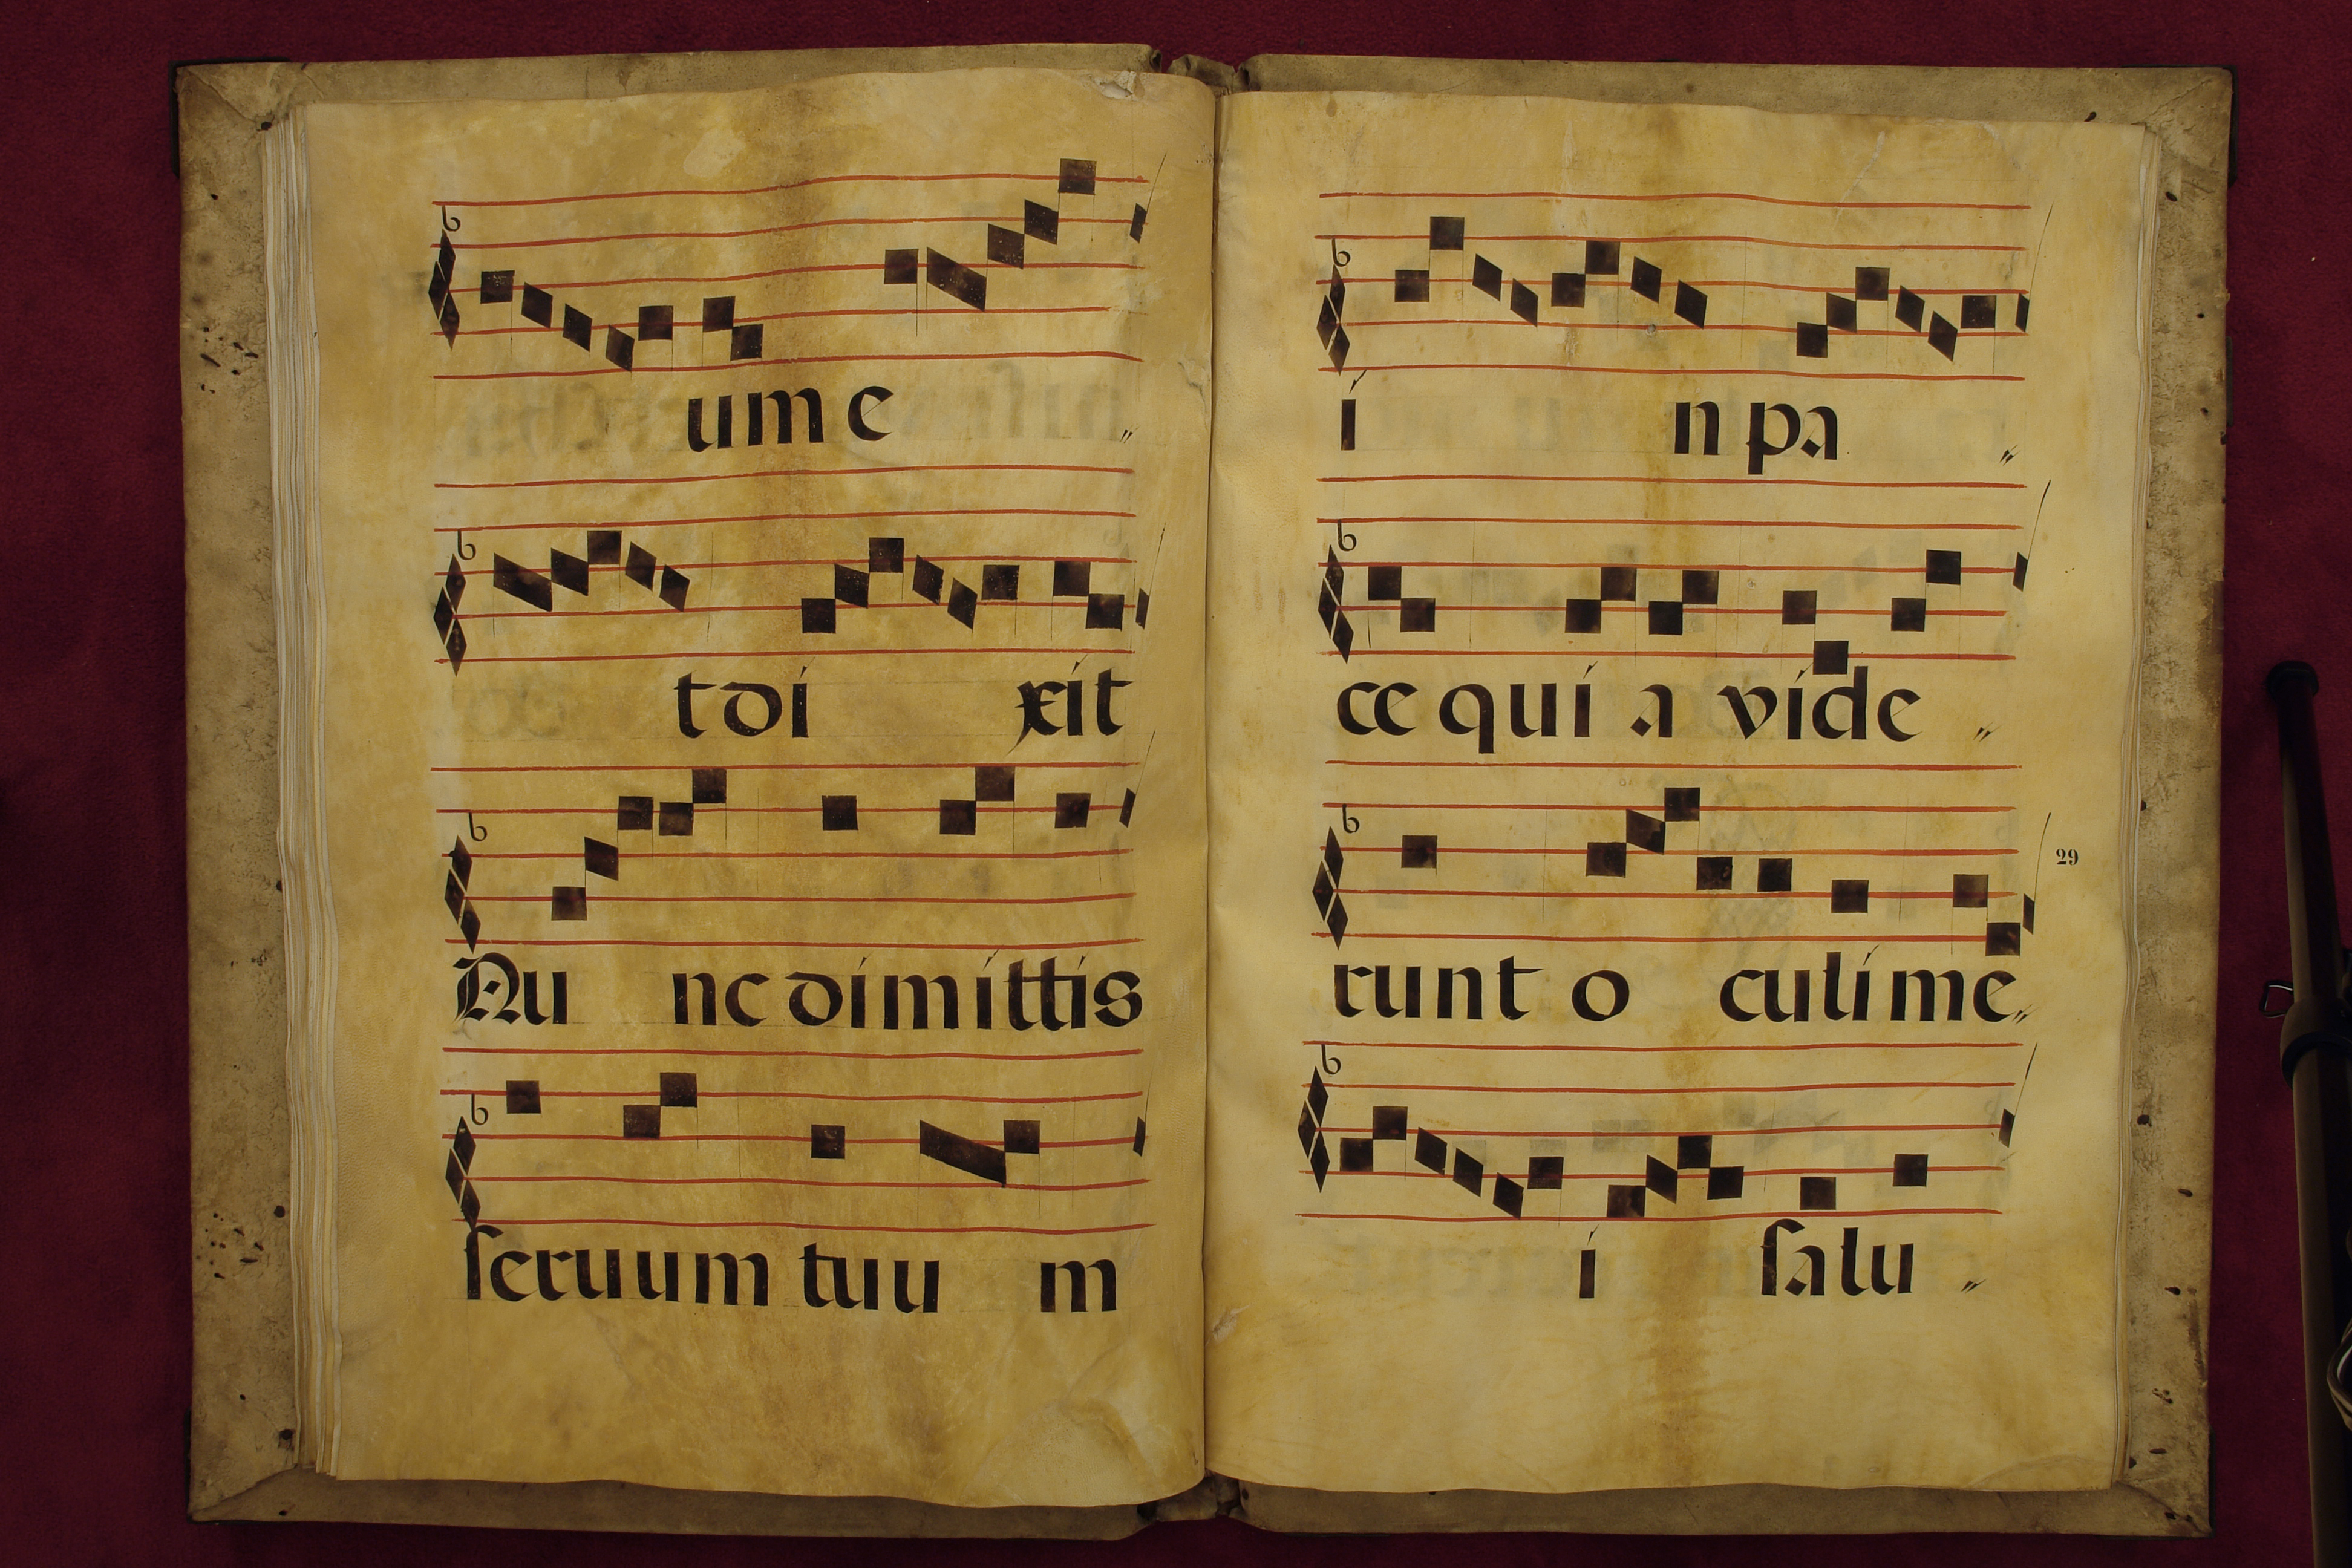 ume
t dixit
Nunc dimittis
seruum tuum
in pa
ce quia vide
runt oculi me
29
i salu